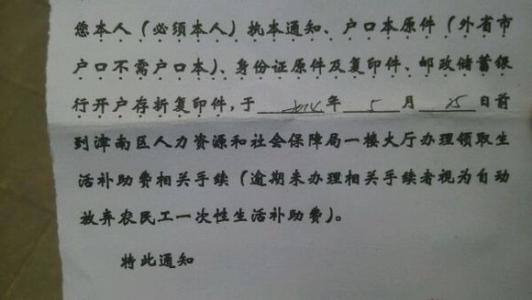 您本人（必须本人）执本通知、户口本原件（外省市
户口不需户口本）、身份证原件及复印件、邮政储蓄银
行开户存折复印件，于 2014 年 5 月 25 日前
到津南区人力资源和社会保障局一楼大厅办理领取生
活补助费相关手续（逾期未办理相关手续者视为自动
放弃农民工一次性生活补助费）。
特此通知